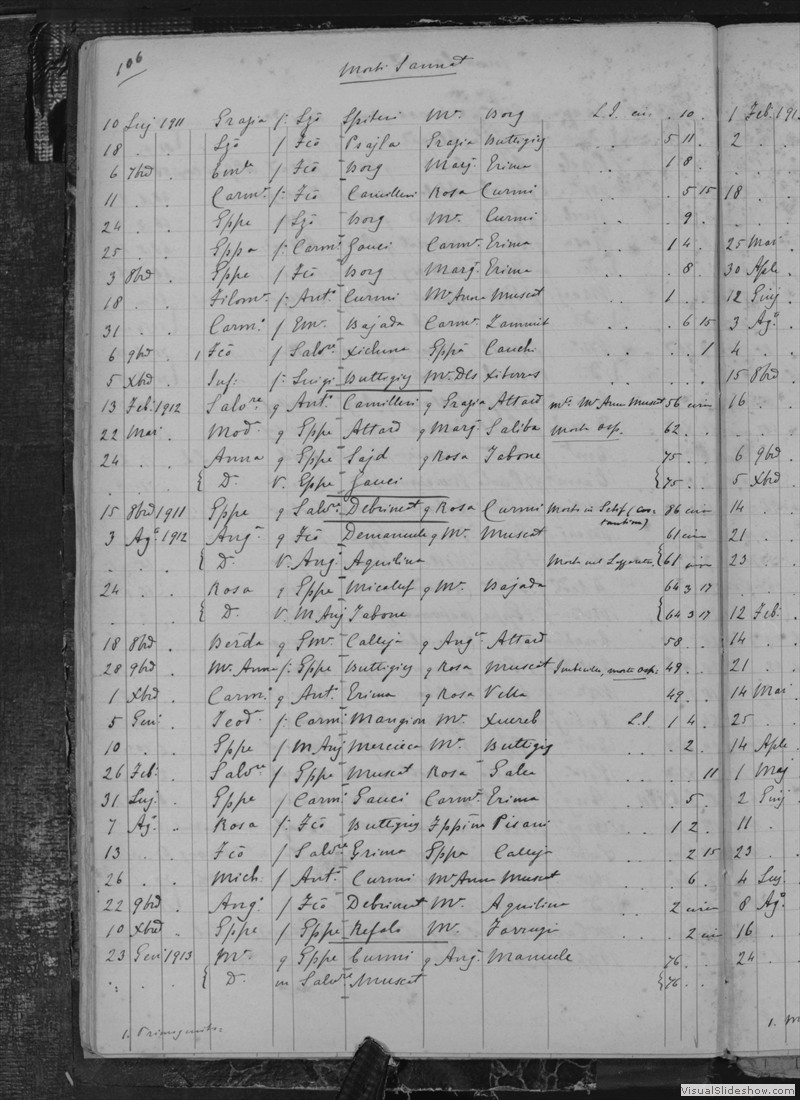 106
Morti Sannat
10 Luj 1911 Grazia f: Lzō Spiteri Mª. Borg L.I. cir. . 10 . 1 Feb. 191
18 . . Lzō f Fcō Psajla Grazia Buttigieg . . 5 11 . 2 .
6 7bre . f Fcō Borg Marj. Grima . . 1 8 .
11 . . Carmª. f: Fcō Camilleri Rosa Curmi . . . 5 15 18 .
24 . . Gppe f Lzō Borg Mª. Curmi . . . 9 .
25 . . Gppa f: Carmº. Gauci Carmª. Grima . . 1 4 . 25 Mar
3 8bre . Gppe f Fcō Borg Marj. Grima . . . 8 . 30 Aple
18 . . Filomª. f: Antº. Curmi Mª Anna Muscat . . 1 . . 12 Giuj
31 . . Carmº. f Emª. Bajada Carmª. Zammit . . . 6 15 3 Agº.
6 9bre . 1 Fcō f Salvre Xiclune Gppa Cauchi . . . . 1 4 .
5 Xbre . Inf: f: Luigi Buttigieg Mª. Dls Xiberras . . . 15 8bre
13 Feb. 1912 Salvre q Antº. Camilleri q Grazia Attard Mª Anna Muscat 56 circa 16 .
22 Mar . Mod. q Gppe Attard q Marj. Saliba Morta osp. 62 . .
24 . . Anna q Gppe Sajd q Rosa Tabone 75 . . 6 9bre
. . { D. V. Gppe Gauci { 75 . . 5 Xbre
15 8bre 1911 Gppe q Salvre Debrincat q Rosa Curmi Morto in Setif (Costantina) 86 circa 14 .
3 Agº 1912 Angª. q Fcō Demanuele q Mª. Muscat 61 circa 21 .
. . { D. V. Angº. Aquilina { 61 circa 23 .
24 . . Rosa q Gppe Micallef q Mª. Bajada 64 3 17
. . { D. V. M. Ang Tabone { 64 3 17 12 Feb.
18 8bre . q Calleja q Angª. Attard 58 . . 14 .
28 9bre . Mª. Anna f: Gppe Buttigieg q Rosa Muscat Imbecille, morta osp. 49 . . 21 .
1 Xbre . Carmº. q Antº. Grima q Rosa Vella 49 . . 14 Mar
5 Gen: . Teod. f: Carmº. Mangion Mª. Xuereb L.I. 1 4 . 25 .
10 . . Gppe f M. Ang Mercieca Mª. Buttigieg . . . 2 . 14 Aple
26 Feb: . Salvre f Gppe Muscat Rosa Galea . . . . 11 1 Maj
31 Luj . Gppe f Carmº. Gauci Carmª. Grima . . . 5 . 2 Giuj
7 Agº . Rosa f: Fcō Buttigieg Pisani . . 1 2 . 11 .
13 . . Fcō f Salvre Grima Gppa Calleja . . . 2 15 23 .
26 . . Mich. f Antº. Curmi Mª Anna Muscat . . . 6 . 4 Luj
22 9bre . Angº. f Fcō Debrincat Mª. Aquilina . . 2 circa 8 Agº.
10 Xbre . Gppe f Gppe Refalo Mª. Farrugia . . . 2 circa 16 .
23 Gen: 1913 Mª. q Gppe Curmi q Angª. Manuele 76 . . 24 .
. . { D. in Salvre Muscat { 76 . .
1. Primogenito.
1. M
VisualSlideshow.com